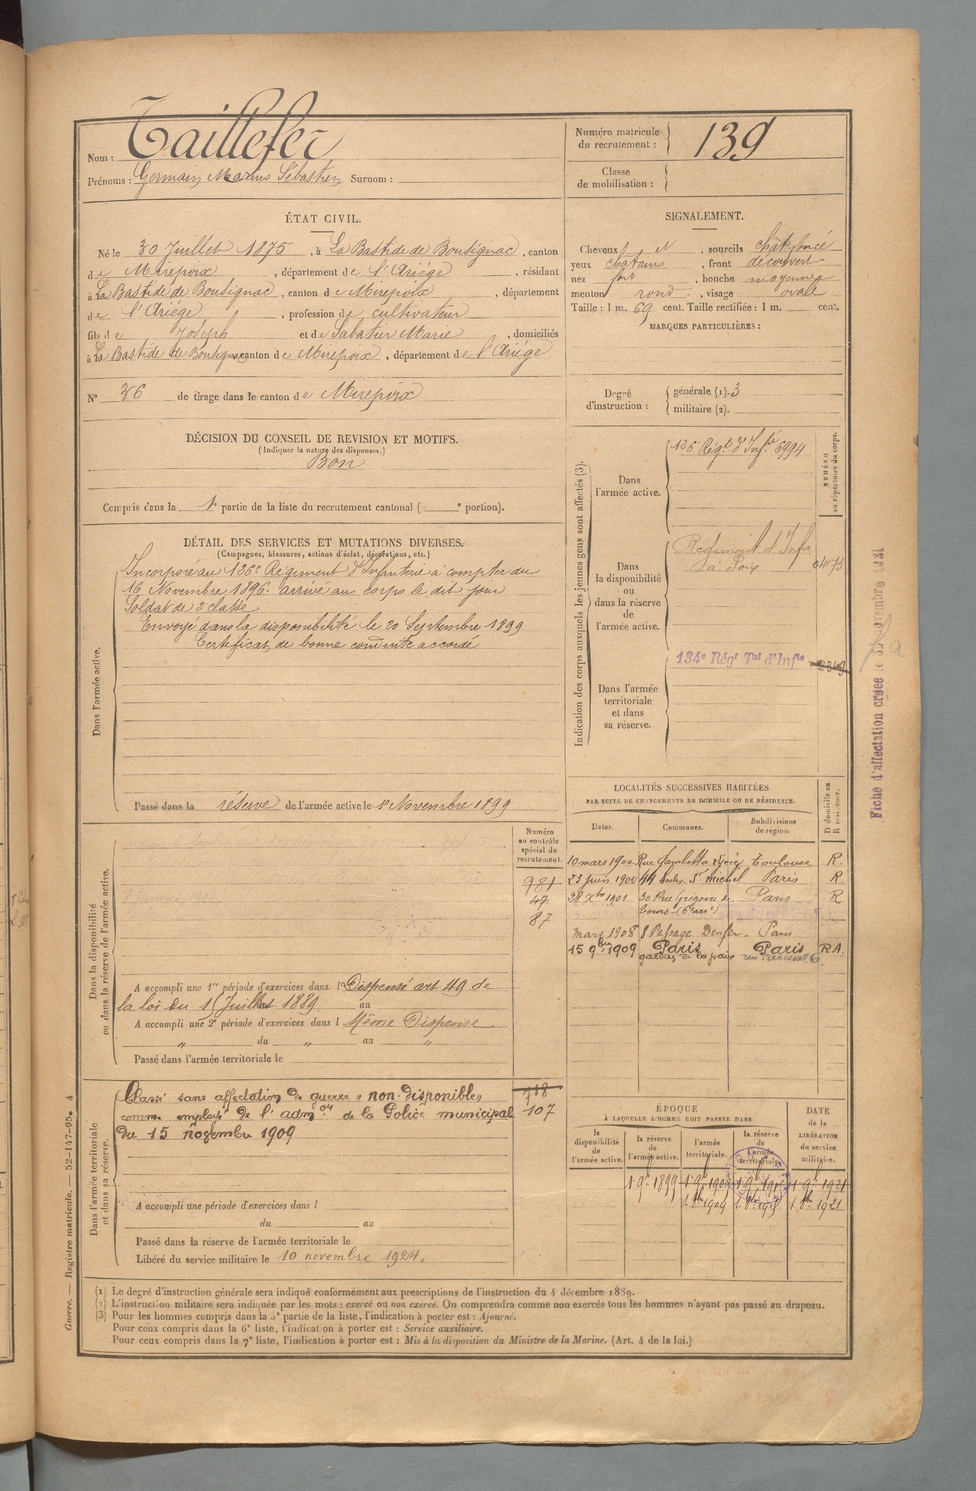 Nom : Taillefer
Prénoms : Germain Marius Sébastien Surnom :
Numéro matricule du recrutement : 139
Classe de mobilisation :
ÉTAT CIVIL.
Né le 30 Juillet 1875, à La Bastide de Bousignac, canton
de Mirepoix, département de l'Ariége, résidant
à La Bastide de Bousignac, canton de Mirepoix, département
de l'Ariége, profession de cultivateur
fils de Joseph et de Sabatier Marie, domiciliés
à La Bastide de Bousignac canton de Mirepoix, département de l'Ariége
N° 36 de tirage dans le canton de Mirepoix
SIGNALEMENT.
Cheveux et, sourcils chât. foncé
yeux chatains, front découvert
nez fort, bouche moyenne
menton rond, visage ovale
Taille : 1 m. 69 cent. Taille rectifiée : 1 m. cent.
MARQUES PARTICULIÈRES :
Degré d'instruction : générale (1). 3
militaire (2).
DÉCISION DU CONSEIL DE REVISION ET MOTIFS.
(Indiquer la nature des dispenses.)
Bon
Compris dans la 1e partie de la liste du recrutement cantonal ( e portion).
DÉTAIL DES SERVICES ET MUTATIONS DIVERSES.
(Campagnes, blessures, actions d'éclat, décorations, etc.)
Dans l'armée active.
Incorporé au 126e Régiment d'Infanterie à compter du
16 Novembre 1896. arrivé au corps le dit jour
Soldat de 2e classe
Envoyé dans la disponibilité le 20 Septembre 1899
Certificat de bonne conduite accordé
Passé dans la réserve de l'armée active le 1er Novembre 1899
Indication des corps auxquels les jeunes gens sont affectés (3).
NUMÉRO au répertoire du corps.
Dans l'armée active.
126 Régt. d'Infie 6994
Dans la disponibilité ou dans la réserve de l'armée active.
Régiment d'Infie
à Foix
Dans l'armée territoriale et dans sa réserve.
134e Régt Tal d'Infie
Fiche d'affectation créée le novembre
Dans la disponibilité ou dans la réserve de l'armée active.
Numéro au contrôle spécial du recrutement.
981
47
87
A accompli une 1re période d'exercices dans l Dispensé art 49 de
la loi du 15 Juillet 1889 au
A accompli une 2e période d'exercices dans l Même Dispense
" du " au "
Passé dans l'armée territoriale le
LOCALITÉS SUCCESSIVES HABITÉES
PAR SUITE DE CHANGEMENTS DE DOMICILE OU DE RÉSIDENCE.
Dates. Communes. Subdivisions de région. D domicile ou R résidence.
10 mars 1900 Rue Gambetta Toulouse R
23 juin 1900 44 boulev. St michel Paris R
28 Xbre 1901 30 Rue Grégoire de Tours (6e arr) Paris R
mars 1908 8 Passage Denfer Paris
15 9bre 1909 Paris gardien de la paix Paris RA.
Dans l'armée territoriale et dans sa réserve.
Classé sans affectation de guerre "non disponible"
comme employé de l'admon de la Police municipal
du 15 novembre 1909
107
A accompli une période d'exercices dans l
du au
Passé dans la réserve de l'armée territoriale le
Libéré du service militaire le 10 novembre 1924.
ÉPOQUE
À LAQUELLE L'HOMME DOIT PASSER DANS
la disponibilité de l'armée active. la réserve de l'armée active. l'armée territoriale. la réserve de l'armée territoriale. DATE de la LIBÉRATION du service militaire.
1 9bre 1899 1 9bre 1909 1 9bre 1915 1 9bre 1921
1 8bre 1909 1 8bre 1915 1 8bre 1921
(1) Le degré d'instruction générale sera indiqué conformément aux prescriptions de l'instruction du 4 décembre 1889.
(2) L'instruction militaire sera indiquée par les mots : exercé ou non exercé. On comprendra comme non exercés tous les hommes n'ayant pas passé au drapeau.
(3) Pour les hommes compris dans la 5e partie de la liste, l'indication à porter est : Ajourné.
Pour ceux compris dans la 6e liste, l'indication à porter est : Service auxiliaire.
Pour ceux compris dans la 7e liste, l'indication à porter est : Mis à la disposition du Ministre de la Marine. (Art. 4 de la loi.)
Guerre. — Registre matricule. — 52-147-95. 4